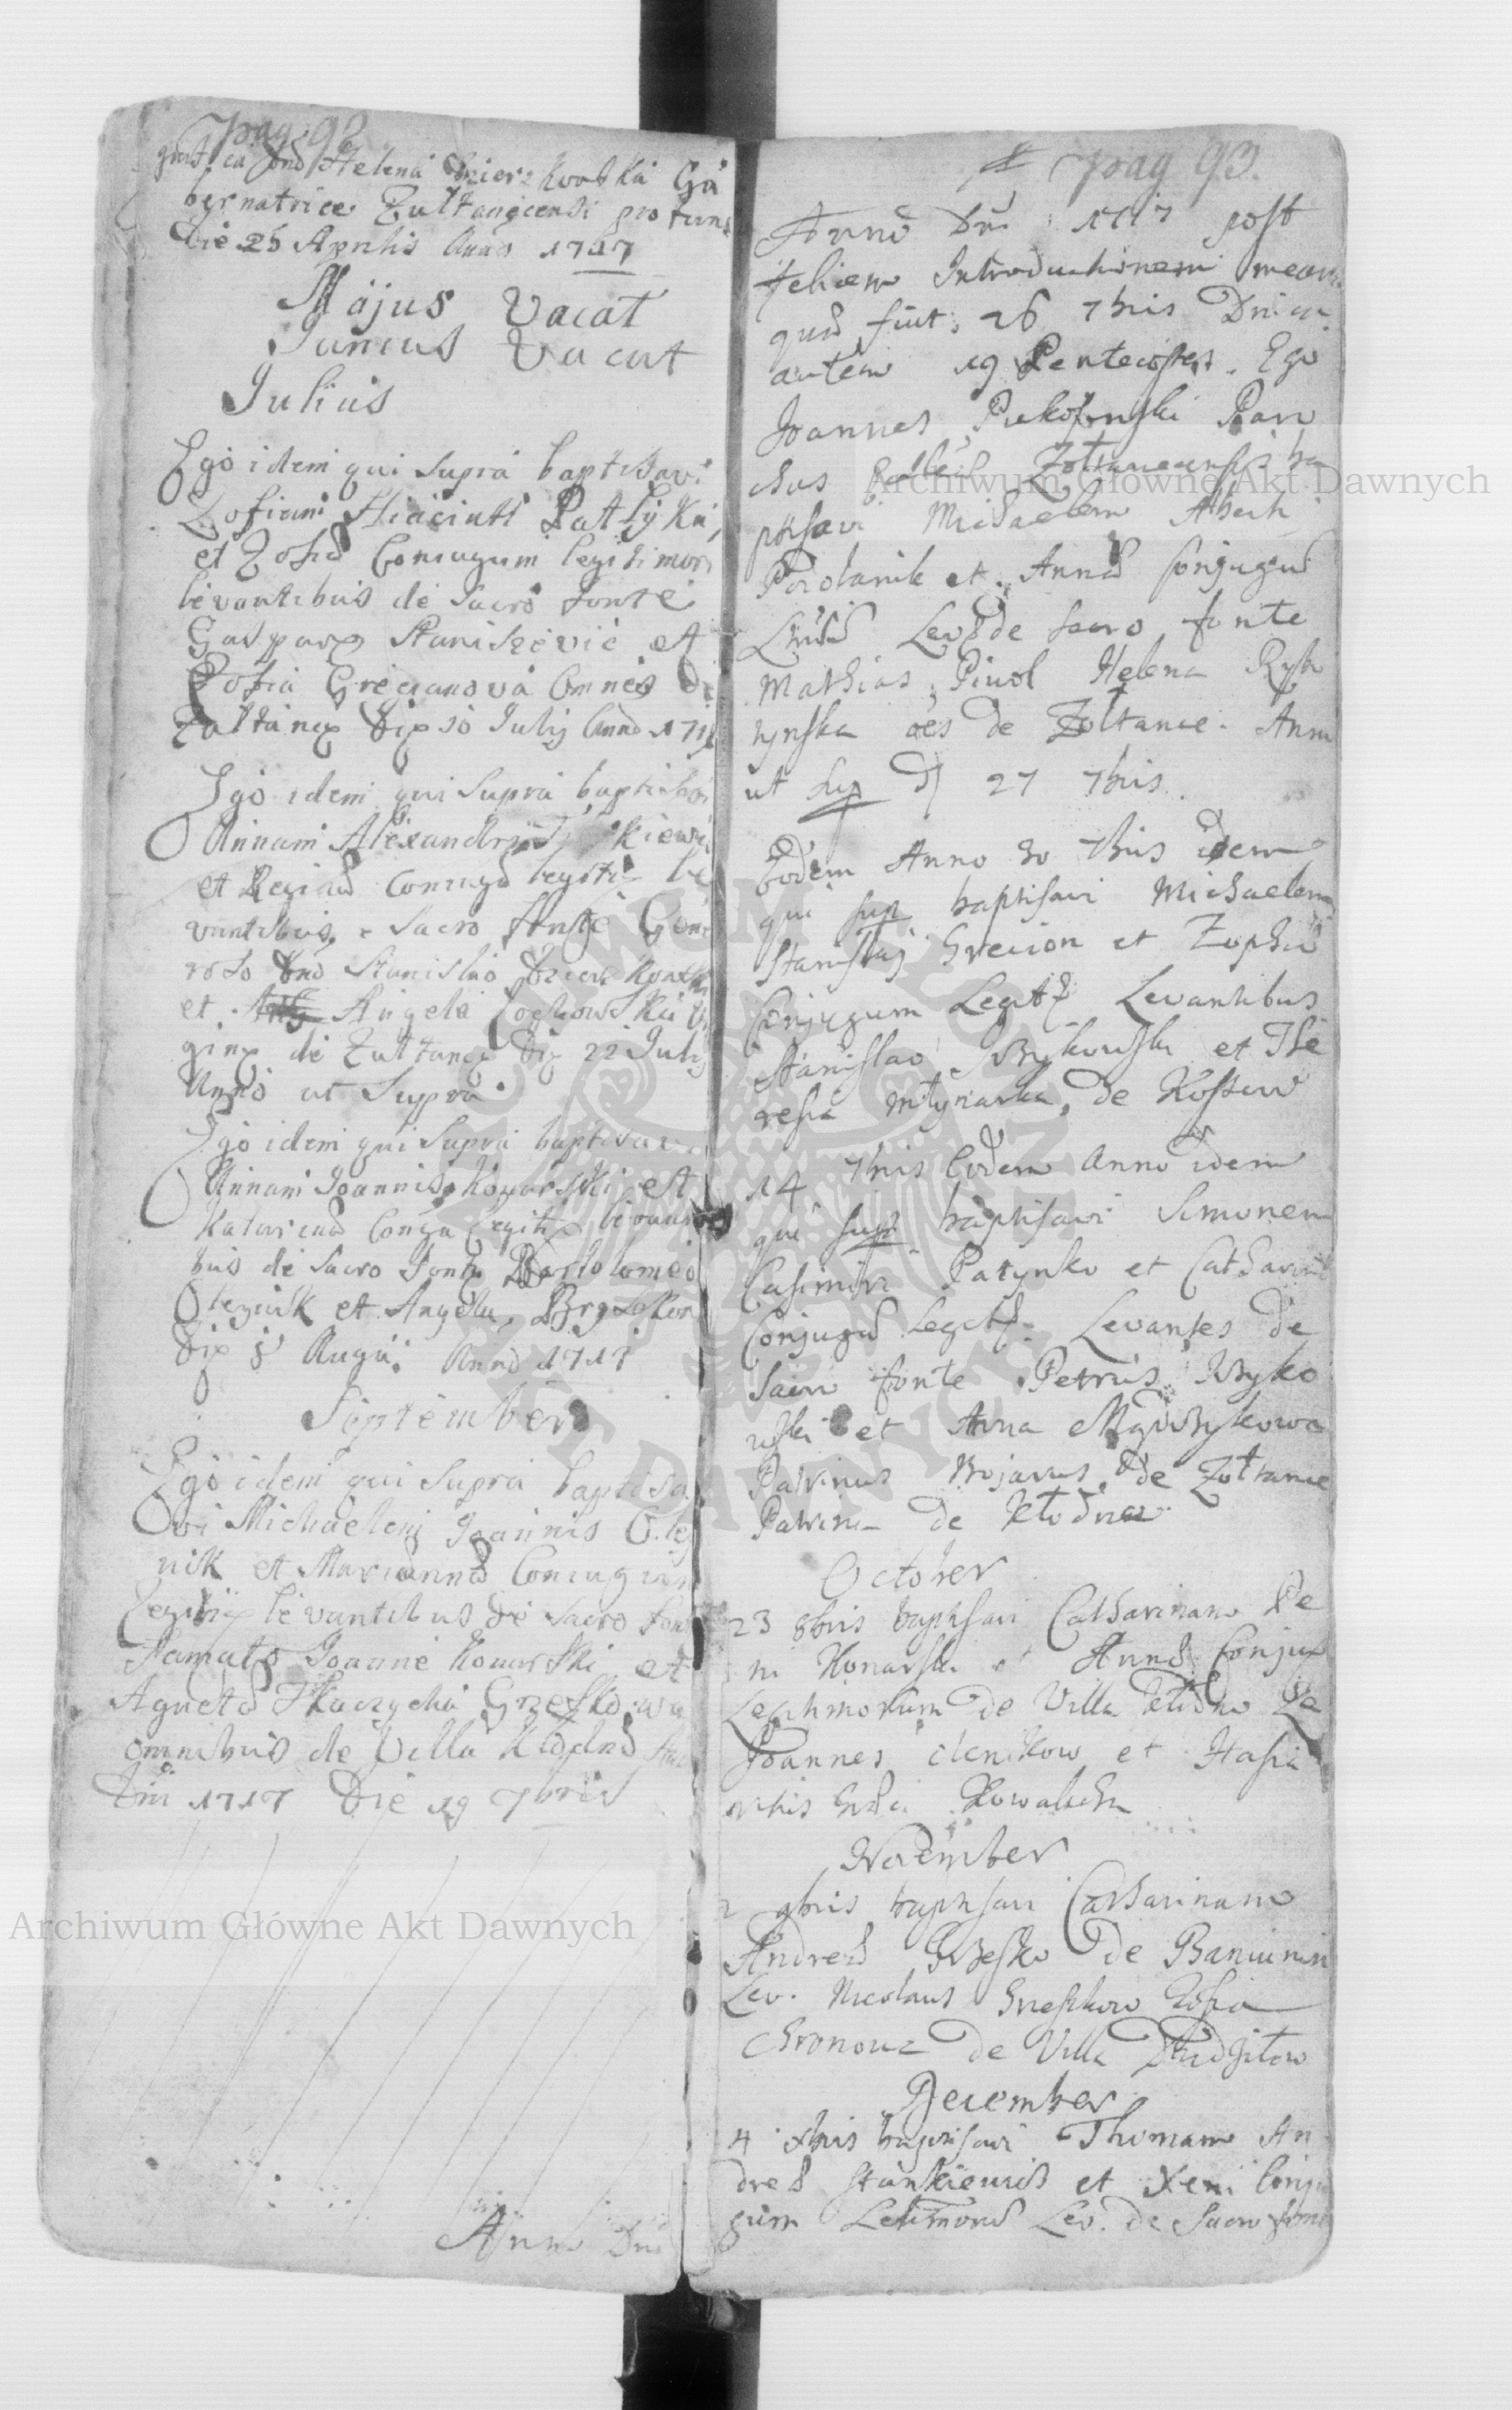 pag: 92
Helena
bernatrice Zultanecensi pro tunc
Die 25 Aprilis Anno 1717
Majus Vacat
Junius Vacat
Julius
Ego idem qui supra baptisavi
Zofiam Hiacinti
et Zofia Coniugum legitimor
levantibus de Sacro fonte
Gaspare Staniszevic et
Zofia Grecianova Omnes de
Zultance Die 10 Julij Anno 171
Ego idem qui supra baptisavi
Annam Alexandri kiewi
et Regina Coniugu legiti le
vantibus e Sacro fonte Gene
roso Dno Stanislao
et Angela Lochowska Vir
gine de Zultance Die 22 Julij
Anno ut Supra
Ego idem qui supra baptisavi
Annam Joannis Konarski et
Katarina legiti levanti
bus de Sacro fonte Bartolomeo
Olegnik et Angela
Die 8 Augu: Anno 1717
September
Ego idem qui supra baptisa
vi Michaelem Joannis Oleg
nik et Marianna Coniugum
legiti levantibus de Sacro fon
Famato Joanne Konarski et
Agneta Tkaczycha Grzeskowa
omnibus de Villa Klodno
Dni 1717 Die 19 7bris
Anno Dni
pag 93.
Anno Dni 1717 post
felicem Introductionem meam
quod fuit 26 7bris Dnica
autem 19 Pentecostes. Ego
Joannes Paro
chus Zoltanecensis ba
ptisavi Michaelem Alberti
et Anna Conjugum
Lev de Sacro fonte
Mathias Piwol Helena Ryb
czynska oes de Zoltance. Anno
ut sup D 27 7bris
Eodem Anno 30 7bris idem
qui sup baptisavi Michaelem
Stanislaj Grecion et Zophia
Conjugum Legit Levantibus
Stanislao Wykowski et The
resia Mlynarka, de Kostew
14 7bris Eodem Anno idem
qui sup baptisavi Simonem
Casimiri Patynko et Catharina
Conjugum Legit Levantes de
Sacro fonte Petrus Wyko
wski et Anna
Patrinus Bojarus de Zoltance
Patrina de Klodno
October
23 8bris baptisavi Catharinam
ni Konarski et Anna Conjug
Legitimorum de Villa Klodno Le
Joannes Olenikow et Hasia
Kowalicha
November
2 9bris baptisavi Catharinam
Andrea Grzesko de Baniunin
Lev. Nicolaus Grzeskow Zosia
Chronowa de Villa
December
4 Xbris baptisavi Thomam An
drea Stankiewicz et Xeni Conju
gum Lev. de Sacro fonte
Archiwum Główne Akt Dawnych
Archiwum Główne Akt Dawnych